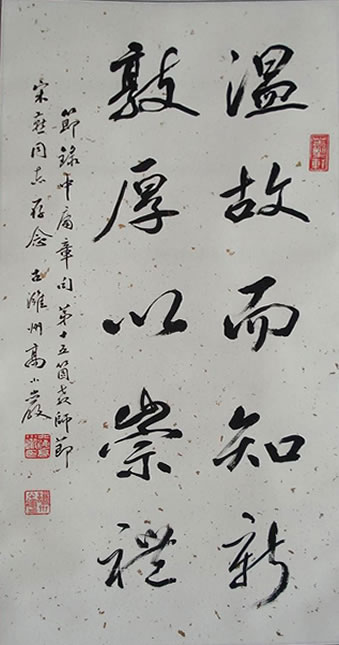 温故而知新
敦厚以崇禮
節錄中庸章句 第十五箇教師節
同志存念 古濰州高小岩